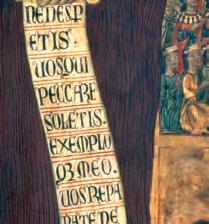 NEDESP
ETIS·
UOSQUI
PECCARE
SOLETIS.
EXEMPLO
Q3 MEO.
UOS REPA
RATE DE